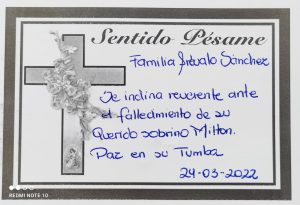 Sentido Pésame
Familia Arévalo Sánchez
Se inclina reverente ante
el fallecimiento de su
Querido sobrino Milton.
Paz en su Tumba
24-03-2022
REDMI NOTE 10